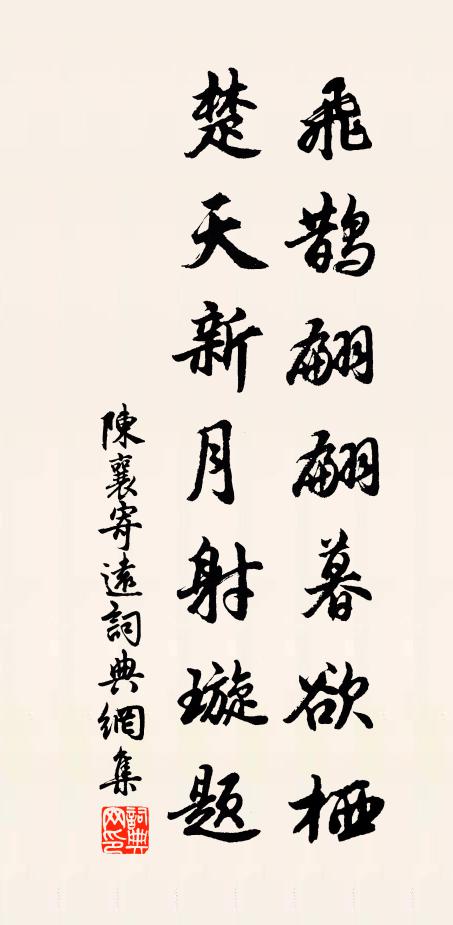 飛鵲翩翩暮欲栖
楚天新月射璇題
陳襄寄遠詞典網集
詞典網印